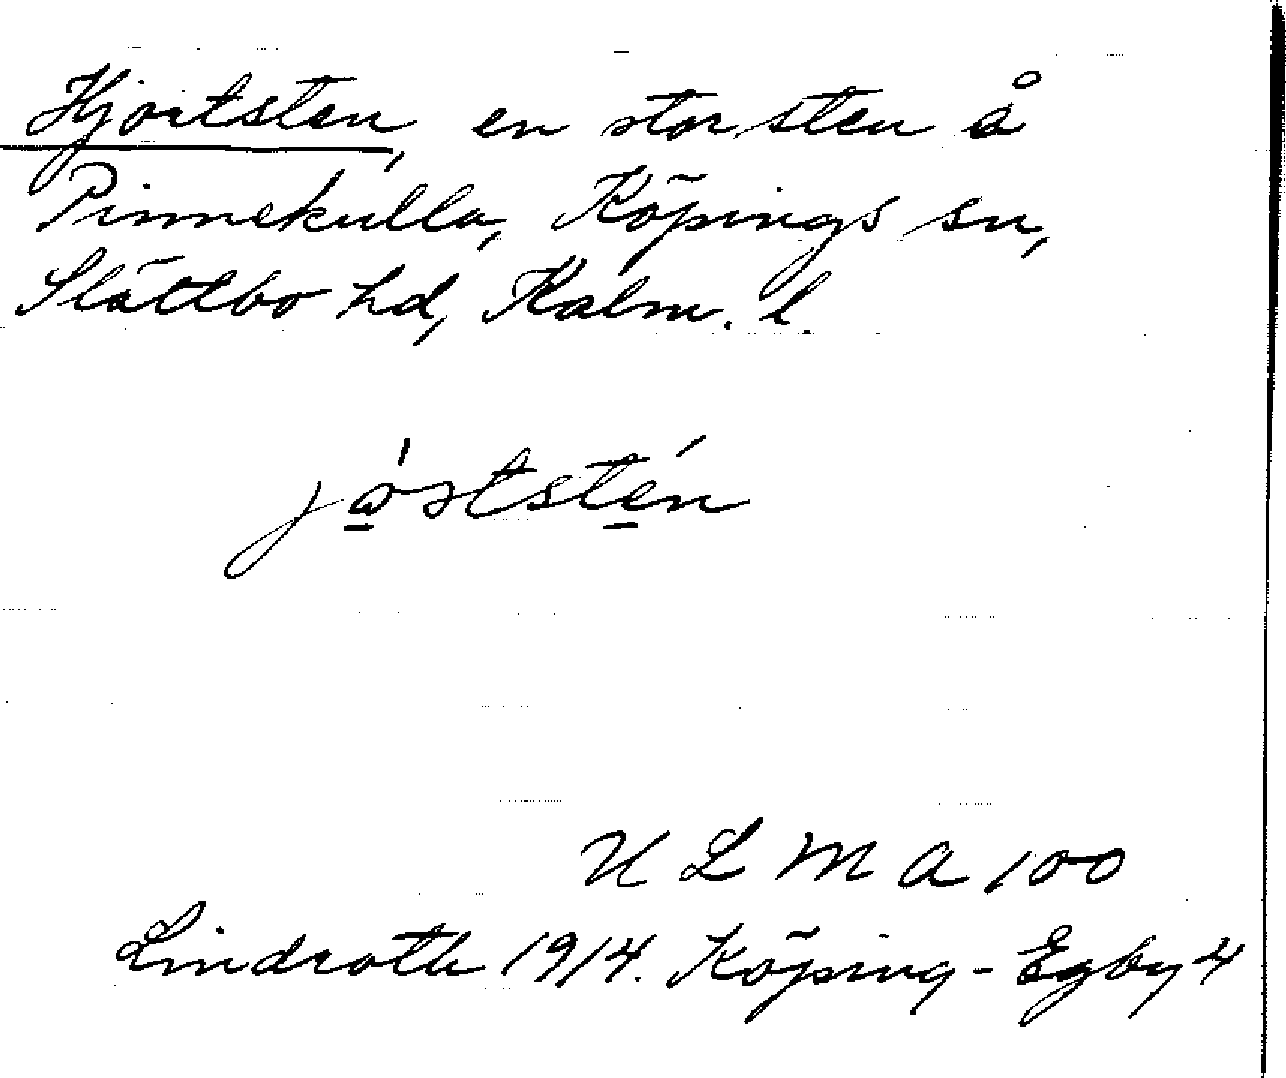 Hjortsten, en stor sten å
Pinnekulla, Köpings sn,
Slättbo hd, Kalm. l.
jo̱rtste̱n
ULMA 100
Lindroth 1914. Köping-Egby 4